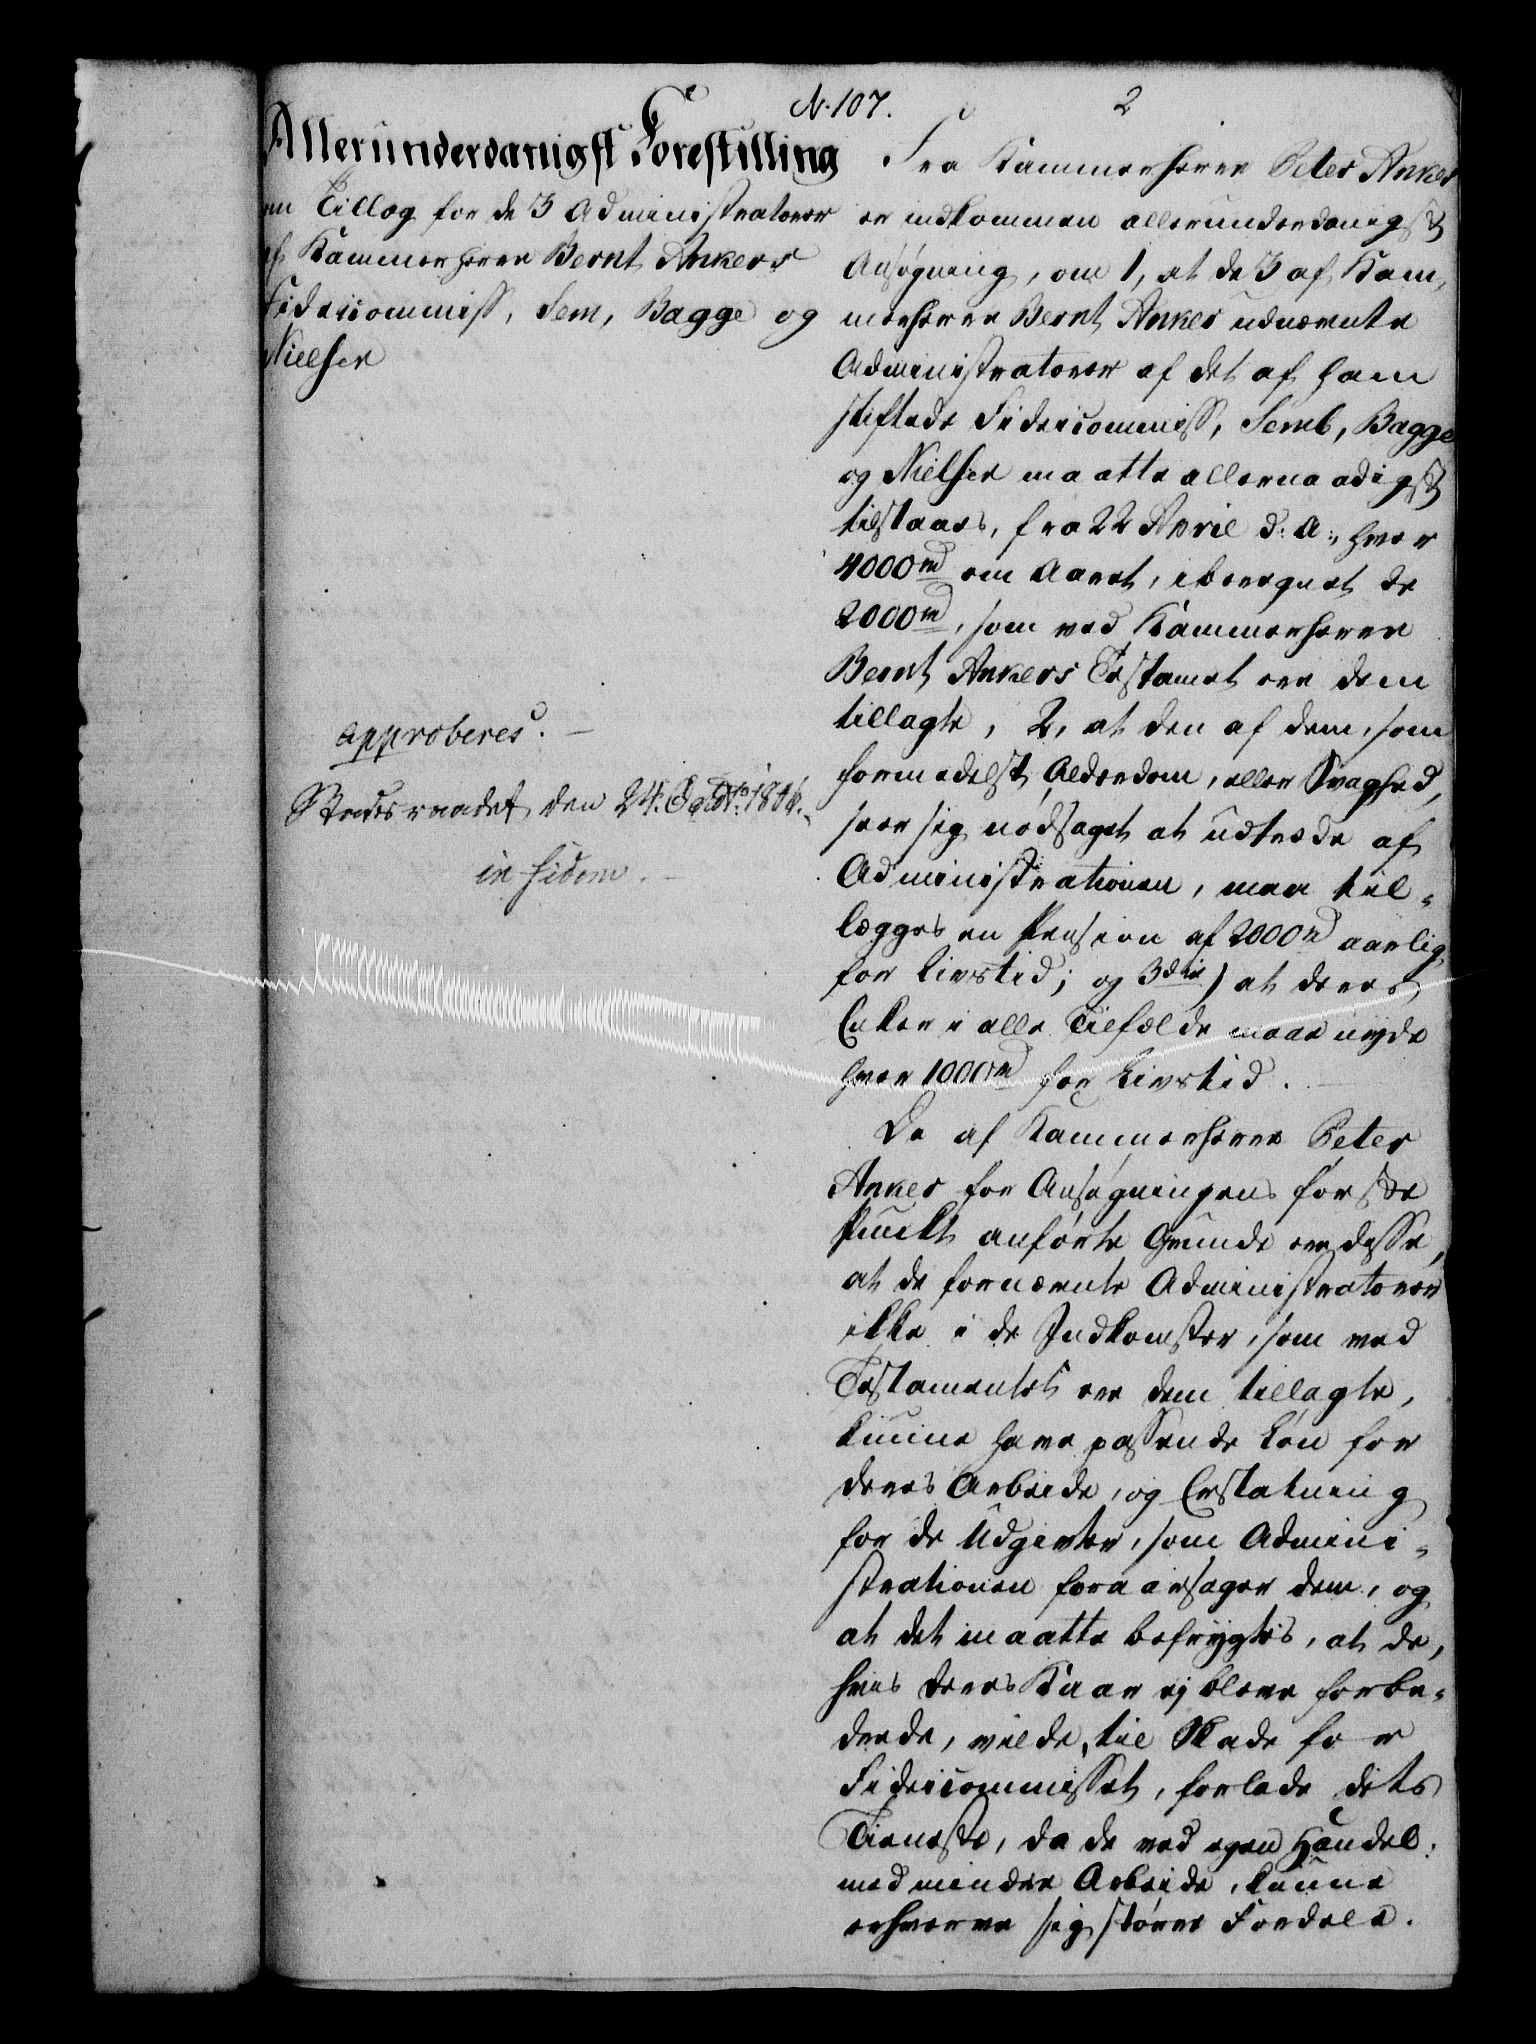 N. 107.
2
Allerunderdanigst Forestilling
om Tillæg for de 3 Administratorer
af Kammerherre Bernt Ankers
Fideicommiss, Sem, Bagge og
Nielsen
approberes. –
Statsraadet den 24. 1806.
in fidem. –
Fra Kammerherre Peter Anker
er indkommen allerunderdanigst
Ansøgning, om 1, at de 3 af Kam-
merherre Bernt Anker udnævnte
Administratorer af det af ham
stiftede Fideicommiss, Semb, Bagge
og Nielsen maatte allernaadigst
tilstaaes, fra 22 April d. A., hver
4000 rd om Aaret, iberegnet de
2000 rd, som ved Kammerherre
Bernt Ankers Testament ere dem
tillagte, 2, at den af dem, som
formedelst Alderdom, eller Svaghed,
seer sig nødsaget at udtræde af
Administrationen, maa til-
lægges en Pension af 2000 rd aarlig
for Livstid; og 3die) at deres
Enker i alle Tilfælde maae nyde
hver 1000 rd for Livstid. –
De af Kammerherre Peter
Anker for Ansøgningens første
Punkt anførte Grunde ere disse,
at de fornævnte Administratorer
ikke i de Indkomster, som ved
Testamentet ere dem tillagte,
kunne have passende Løn for
deres Arbeide, og Erstatning
for de Udgivter, som Admini-
strationen foraarsager dem, og
at det maatte befrygtes, at de,
hvis deres Kaar ej bleve forbe-
drede, vilde, til Skade for
Fideicommisset, forlade dets
Tieneste, da de ved egen Handel,
med mindre Arbeide, kunne
erhverve sig større Fordele.